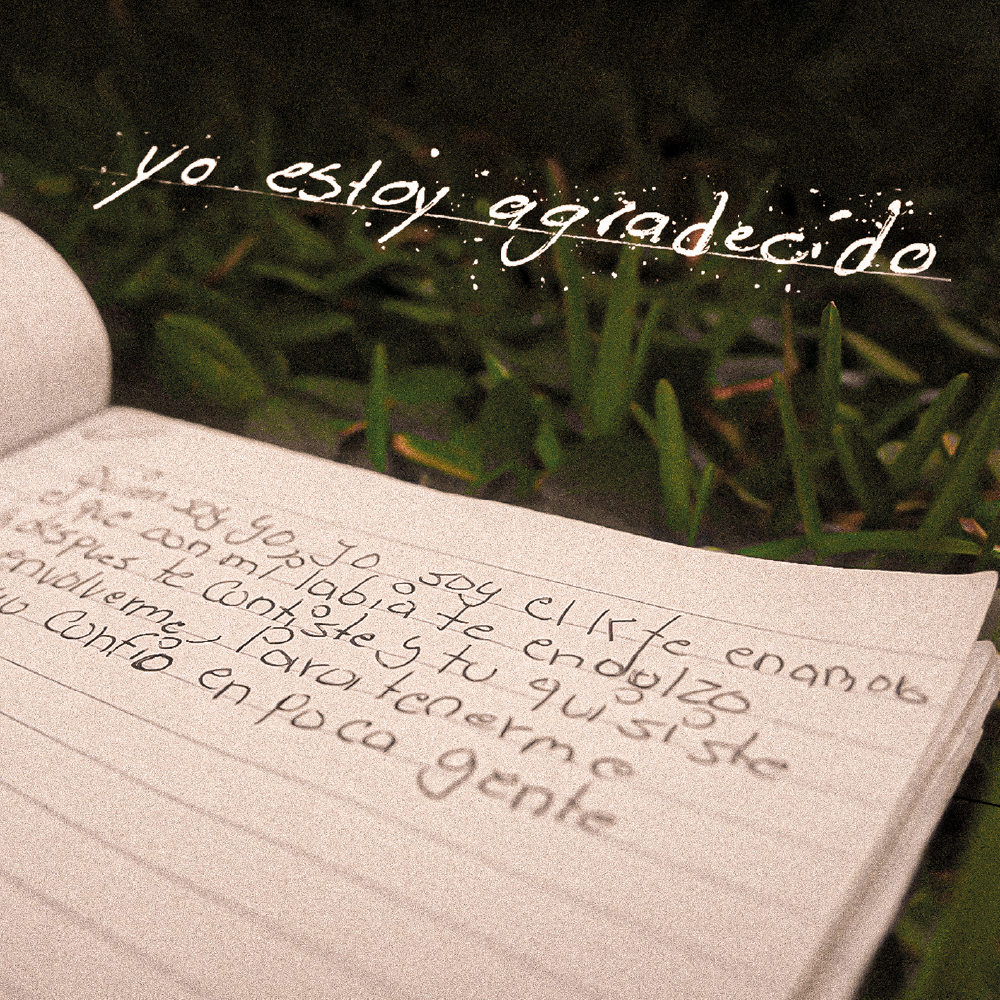 yo estoy agradecido
Quien soy yo, yo soy el k te enamoro
el que con mi labia te endulzo
despues te contiste y tu quisiste
envolverme, para tenerme
yo confio en poca gente